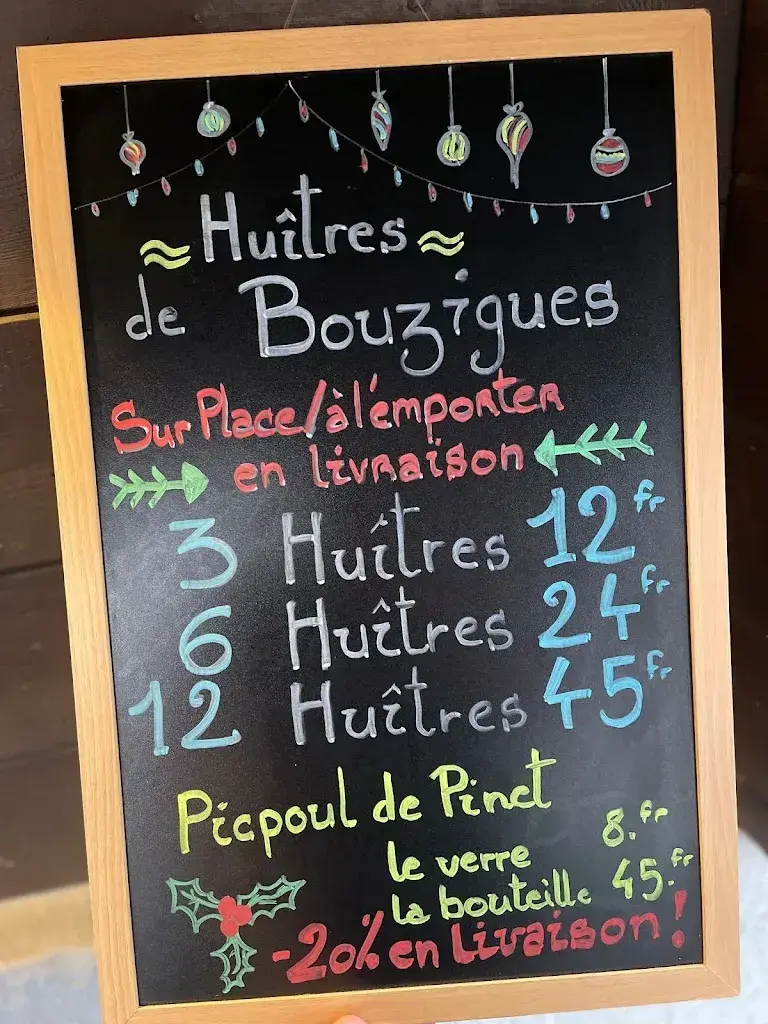 ≈ Huîtres ≈
de Bouzigues
Sur Place/à l'émporter
en livraison
3 Huîtres 12 fr
6 Huîtres 24 fr
12 Huîtres 45 fr
Picpoul de Pinet
le verre 8.fr
la bouteille 45.fr
-20% en livraison!